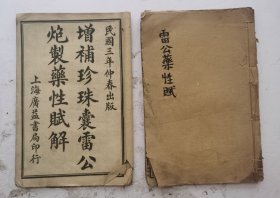 民國三年仲春出版
增補珍珠囊雷公
炮製藥性賦解
上海廣益書局印行
雷公藥性賦